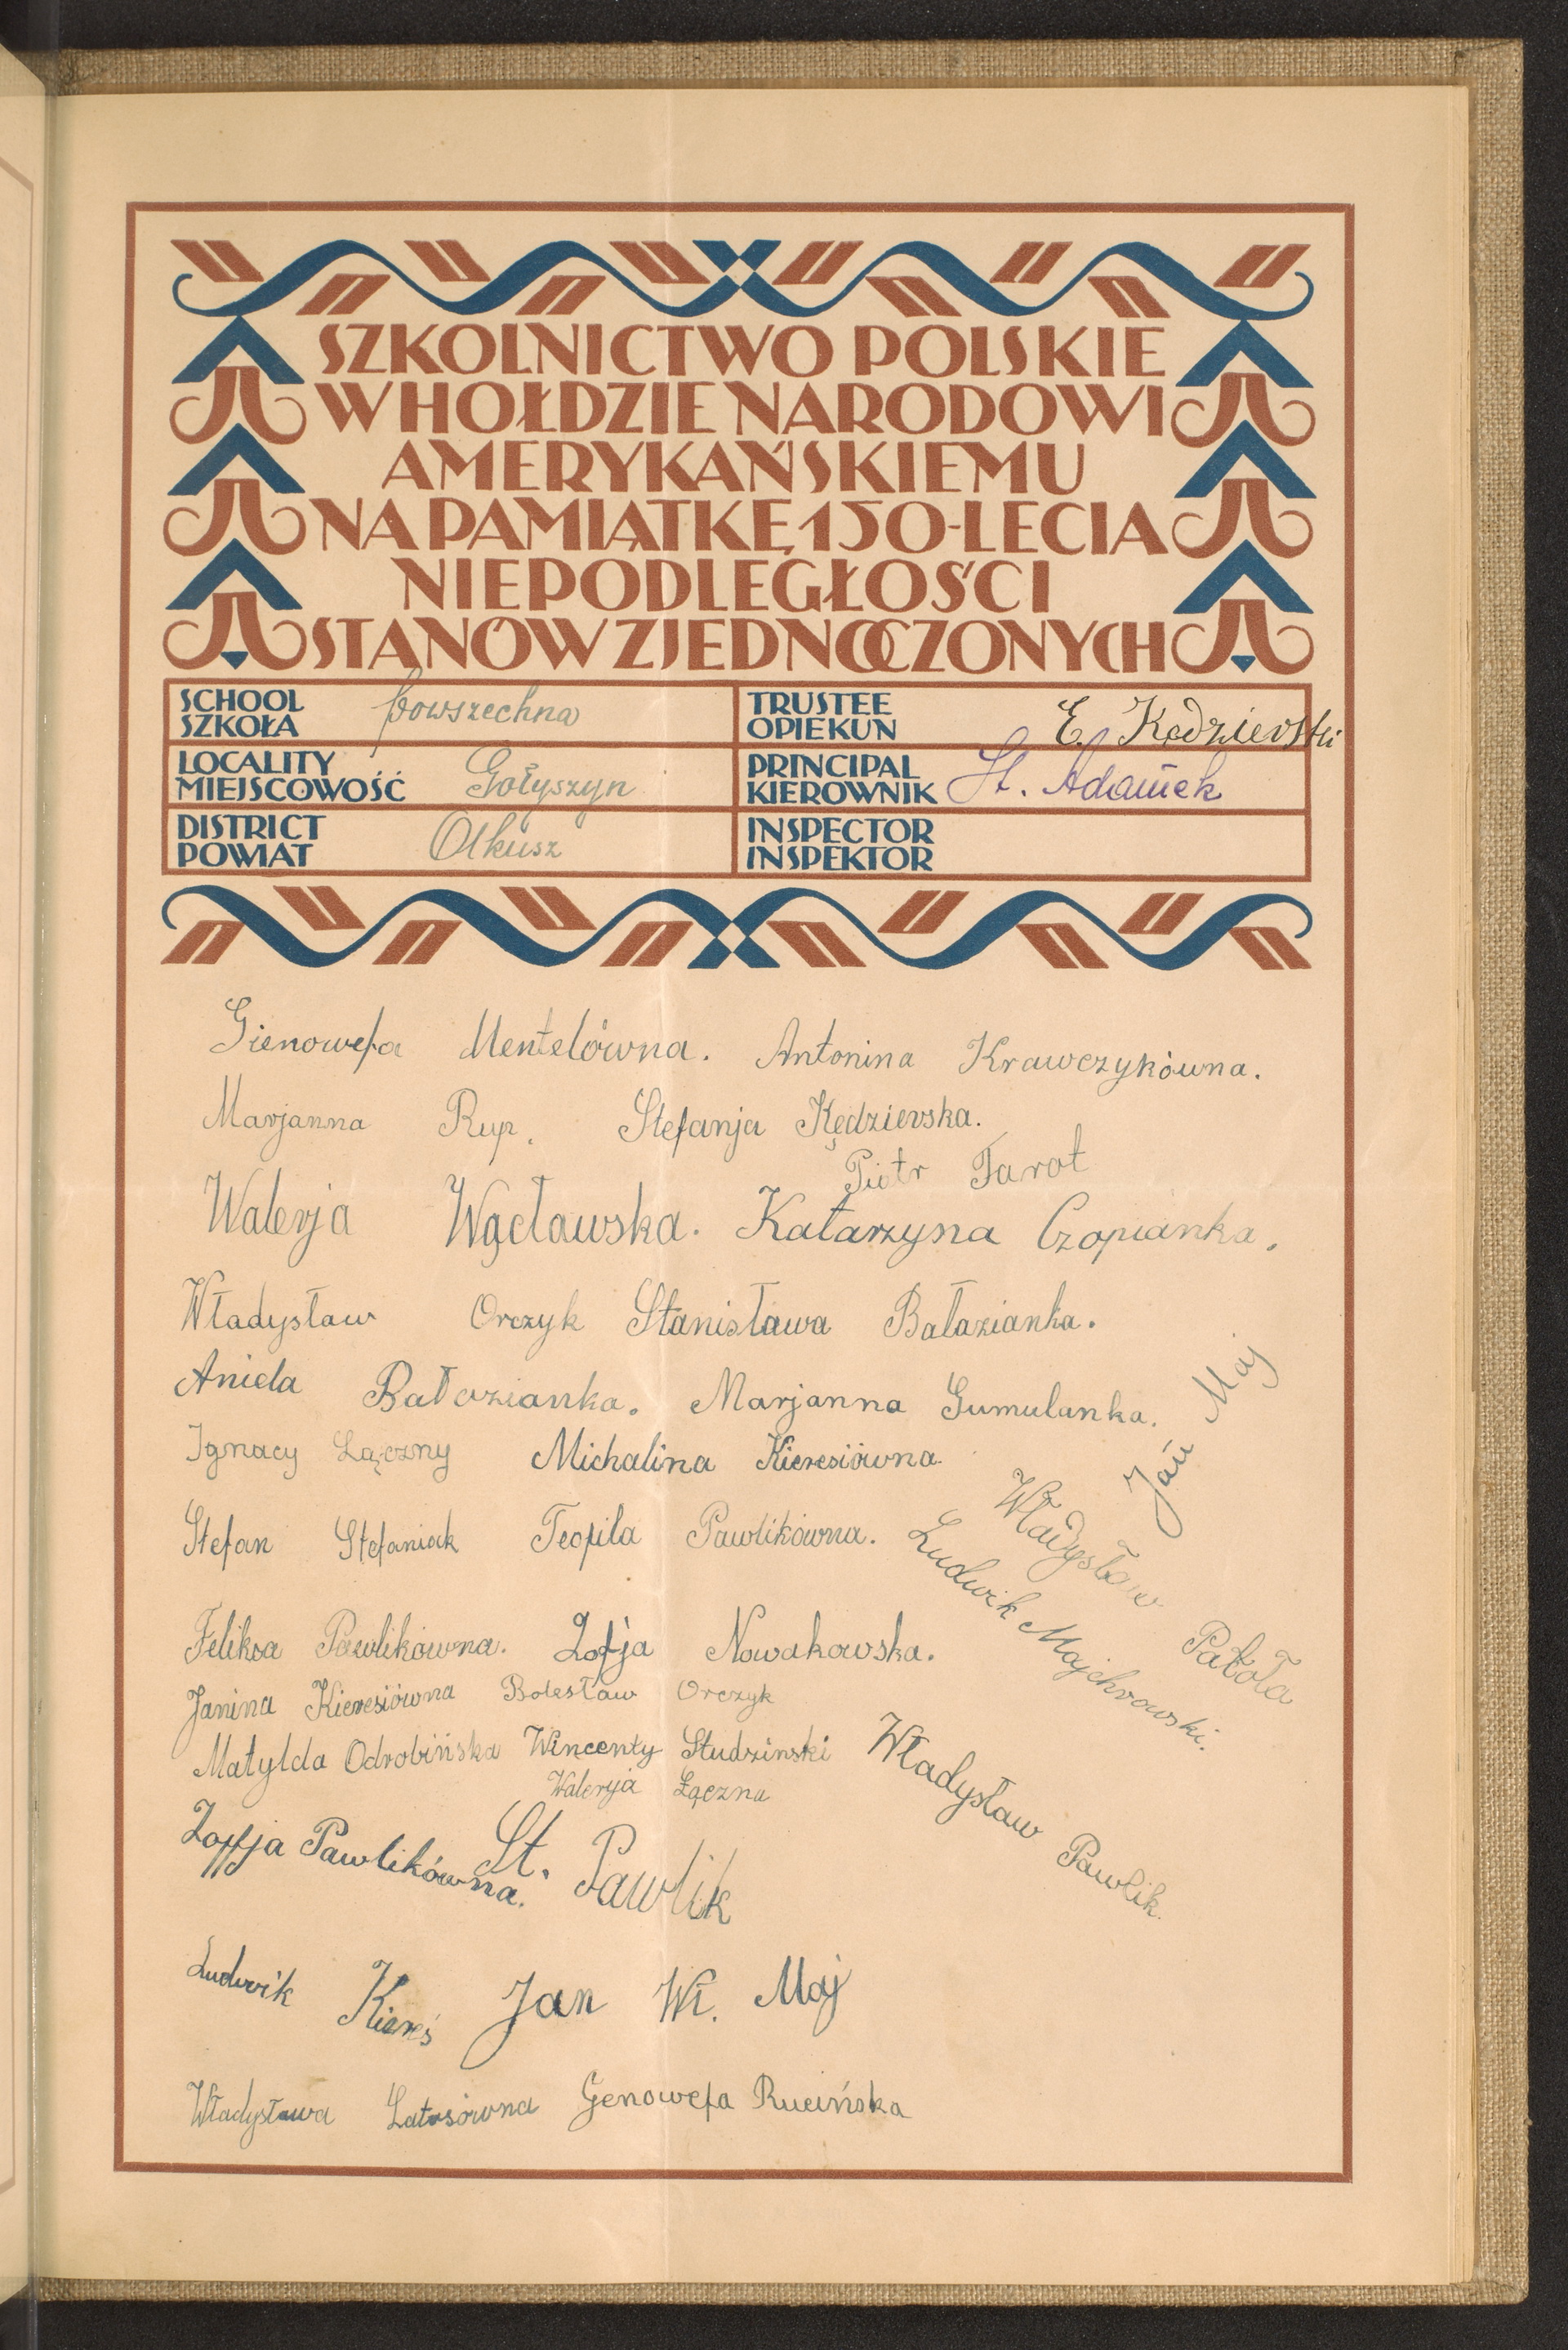 SZKOLNICTWO POLSKIE
W HOŁDZIE NARODOWI
AMERYKAŃSKIEMU
NA PAMIĄTKĘ 150-LECIA
NIEPODLEGŁOŚCI
STANÓW ZJEDNOCZONYCH
SCHOOL
SZKOŁA powszechna
TRUSTEE
OPIEKUN E. Kędzierski
LOCALITY
MIEJSCOWOŚĆ Gołyszyn
PRINCIPAL
KIEROWNIK St. Adamek
DISTRICT
POWIAT Olkusz
INSPECTOR
INSPEKTOR
Gienowefa Mentelówna. Antonina Krawczykówna.
Marjanna Rup. Stefanja Kędzierska.
Piotr Tarot
Walerja Wącławska. Katarzyna Czopianka.
Władysław Orczyk Stanisława Bałazianka.
Aniela Bałazianka. Marjanna Gumulanka.
Jan Maj
Ignacy Łączny Michalina Kieresiówna
Stefan Stefaniak Teofila Pawlikówna.
Władysław Patoła
Ludwik Majchrowski.
Feliksa Pawlikówna. Zofja Nowakowska.
Janina Kieresiówna Bolesław Orczyk
Matylda Odrobińska Wincenty Studzinski
Walerja Łączna
Władysław Pawlik.
Zofja Pawlikówna. St. Pawlik
Ludwik Kiereś Jan Wł. Maj
Władysława Latosówna Genowefa Rucińska